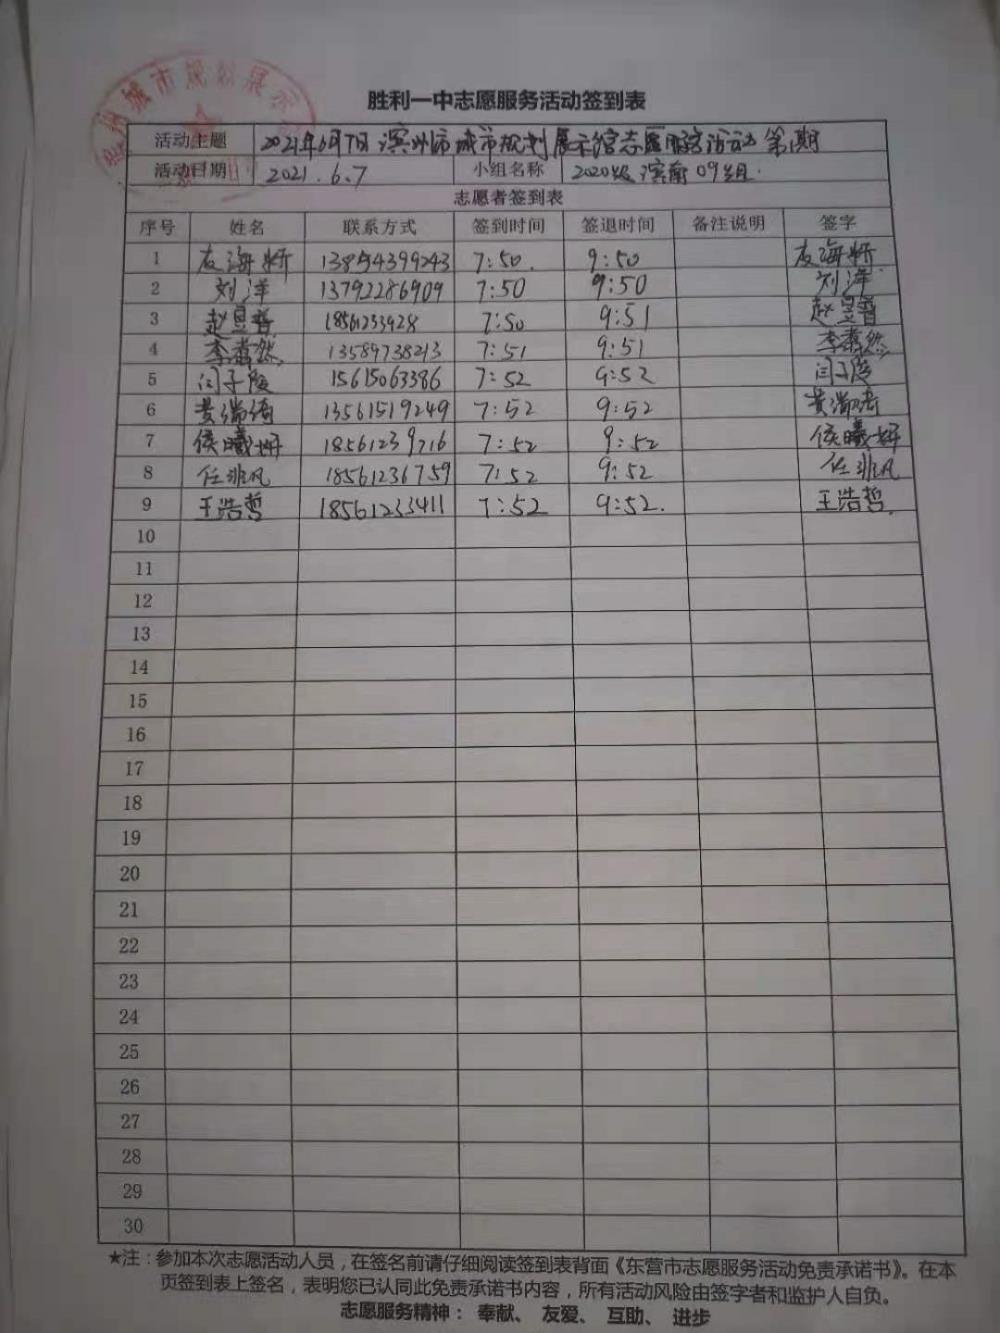 胜利一中志愿服务活动签到表
活动主题 2021年6月7日滨州市城市规划展示馆志愿服务活动第1期
活动日期 2021.6.7 小组名称 2020级滨南09组.
志愿者签到表
序号 姓名 联系方式 签到时间 签退时间 备注说明 签字
1 友海娇 13854399243 7:50. 9:50 友海娇
2 刘洋 13792286909 7:50 9:50 刘洋
3 赵昱普 18561233928 7:50 9:51 赵昱普
4 李然 13589738213 7:51 9:51 李然
5 闫子陵 15615063386 7:52 9:52 闫子陵
6 黄瑞琦 13561519249 7:52 9:52 黄瑞琦
7 侯曦妍 18561239716 7:52 9:52 侯曦妍
8 任非凡 18561236759 7:52 9:52 任非凡
9 王浩哲 18561233411 7:52 9:52. 王浩哲.
10
11
12
13
14
15
16
17
18
19
20
21
22
23
24
25
26
27
28
29
30
★注：参加本次志愿活动人员，在签名前请仔细阅读签到表背面《东营市志愿服务活动免责承诺书》。在本
页签到表上签名，表明您已认同此免责承诺书内容，所有活动风险由签字者和监护人自负。
志愿服务精神： 奉献、 友爱、 互助、 进步